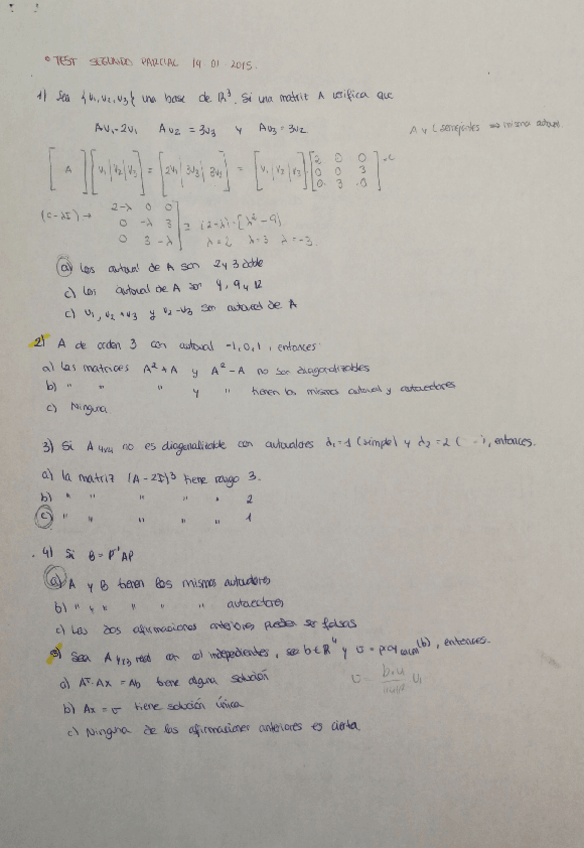 • TEST SEGUNDO PARCIAL 14 01 2015.
1) Sea {v1, v2, v3} una base de R^3. Si una matriz A verifica que
Av1 = 2v1 Av2 = 3v3 y Av3 = 3v2
A y C semejentes misma autoval.
[A][v1|v2|v3] = [2v1|3v3|3v2] = [v1|v2|v3][2 0 0
0 0 3
0 3 0] = C
(C-λI) → 2-λ 0 0
0 -λ 3
0 3 -λ = (2-λ)·[λ²-9]
λ=2 λ=3 λ=-3.
a) Los autoval de A son 2 y 3 doble
c) Los autoval de A son 4, 9 y 12
c) v1, v2+v3 y v2-v3 son autovect de A
2) A de orden 3 con autoval -1, 0, 1, entonces
a) Las matrices A²+A y A²-A no son diagonalizables
b) " " " y " tienen los mismos autoval y autovectores
c) Ninguna
3) Si A4x4 no es diagonalizable con autovalores λ1=1 (simple) y λ2=2 ( , entonces.
a) la matriz (A-2I)³ tiene rango 3.
b) " " " " " 2
c) " " " " " 1
4) Si B = P⁻¹AP
a) A y B tienen los mismos autovalores
b) " " " " " autovectores
c) Las dos afirmaciones anteriores pueden ser falsas
5) Sea A4x3 real con col independientes, sea b∈R⁴ y v = proy col(A) (b), entonces.
a) AᵗAx = Ab tiene alguna solución
v = b·u / u1
b) Ax = v tiene solución única
c) Ninguna de las afirmaciones anteriores es cierta